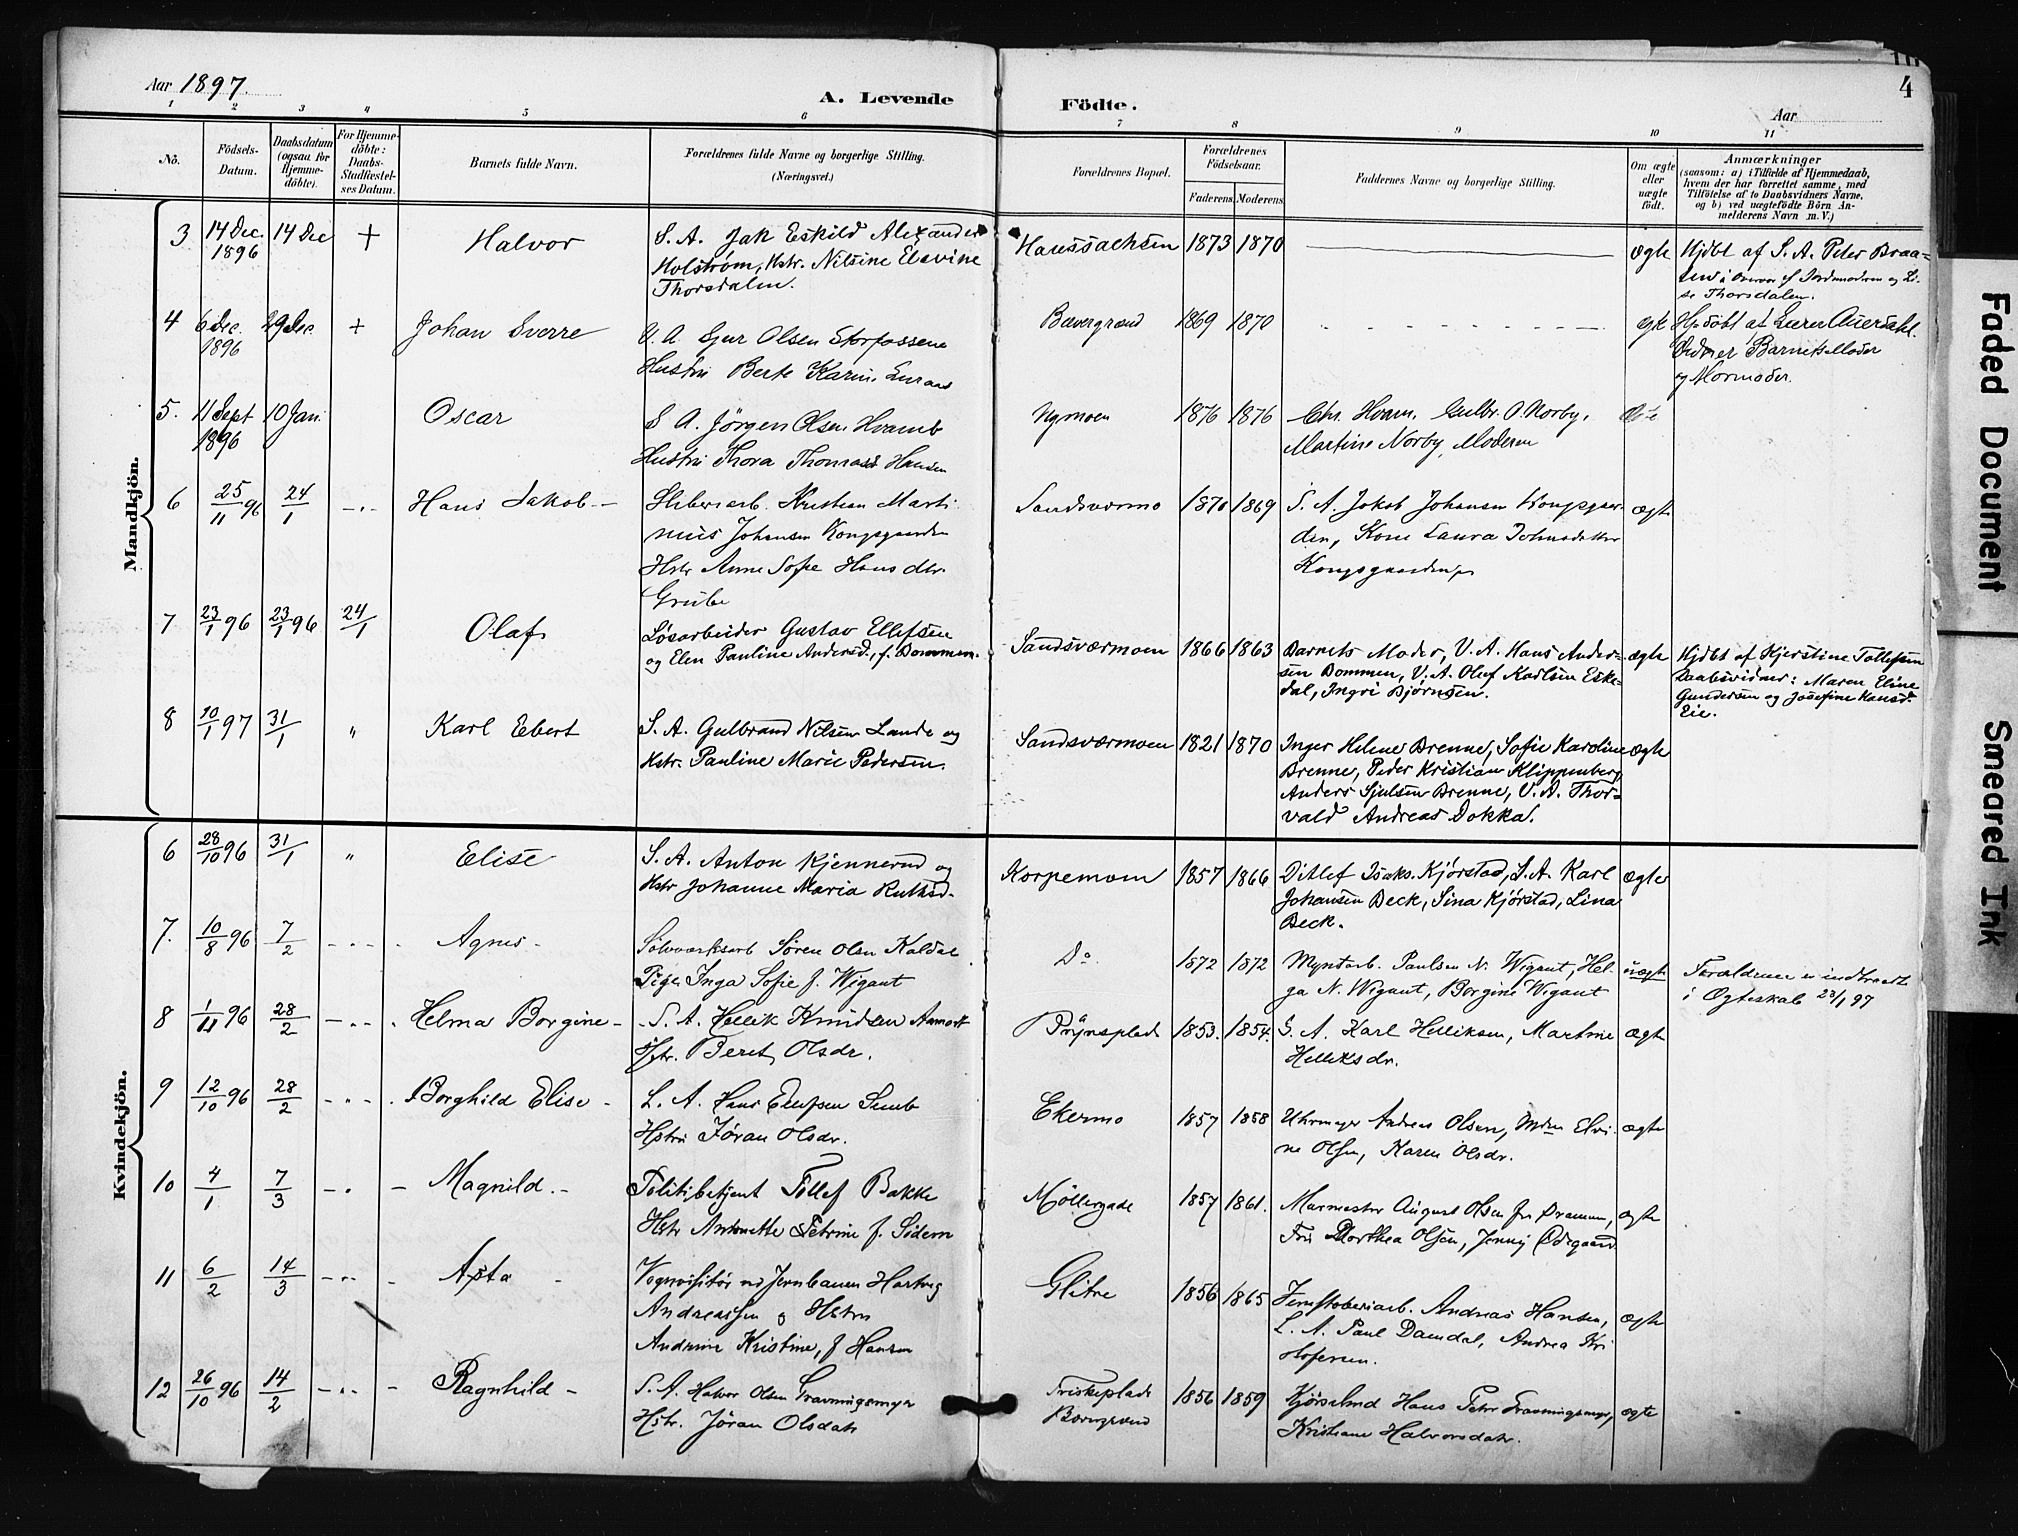 Aar 1897.
A. Levende Födte.
Aar
4
1 2 3 4 5 6 7 8 9 10 11
No.
Födsels-Datum.
Daabsdatum (ogsaa for Hjemme-döbte).
For Hjemme-döbte: Daabs-Stadfæstel-ses Datum.
Barnets fulde Navn.
Forældrenes fulde Navne og borgerlige Stilling. (Næringsvei.)
Forældrenes Bopæl.
Forældrenes Födselsaar.
Faderens. Moderens.
Faddernes Navne og borgerlige Stilling.
Om ægte eller uægte födt.
Anmærkninger
(saasom: a) i Tilfælde af Hjemmedaab,
hvem der har forrettet samme, med
Tilföielse af to Daabsvidners Navne,
og b) ved uægtefödte Börn An-
melderens Navn m. V.)
Mandkjön.
3 14 Dec. 1896 14 Dec + Halvor
S. A. Jak Eskild Alexander
Holstrøm, Hstr. Nilsine Elevine
Thorsdalen.
Haussachsen 1873 1870 ægte
Hjdbt af S. A. Peter Braa-
ten i Overvær af Jordemoderen og Li-
se Thorsdalen.
4 6 Dec. 1896 29 Dec. + Johan Sverre
V. A Sjur Olsen Storfossene
Hustru Berte Karine
Bævergrænd 1869 1870 ægte
Hjdøbt af Lærer Auerdahl.
Vidner Barnets Moder
og Mormoder.
5. 11 Sept 1896 10 Jan. Oscar
S A. Jörgen Olsen Hvamb
Hustru Thora Thomasd Hansen
Nymoen 1876 1876
Chr. Hvam, Gulbr. O. Norby,
Martine Norby, Moderen
Ægte
6 25/11 96 24/1 -"- Hans Jakob -
Sliberiarb. Kristian Marti
nius Johansen Kongsgaarden
Hstr Anne Sofie Hans dtr.
Grube
Sandsværmo 1870 1869
S. A. Jakob Johansen Kongsgaar-
den, Kone Laura Johnsdatter
Kongsgaarden
ægte
7 23/1 96 23/1 96 24/1 Olaf
Løsarbeider Gustav Ellefsen
og Elen Pauline Andersd., f. Bommen.
Sandsværmoen 1866 1863
Barnets Moder, V. A. Hans Ander-
sen Bommen, V. A. Olef Karlsen Eske-
dal, Ingri Bjørnsen.
ægte
Hjdbt af Kjerstine Tollefsen
Daabsvidner: Maren Eline
Gundersen og Josefine Hansd.
Eie.
8 10/1 97 31/1 " Karl Ebert
S. A. Gulbrand Nilsen Lande og
Hstr. Pauline Marie Pedersen.
Sandsværmoen 1821 1870
Inger Helene Brenne, Sofie Karoline
Brenne, Peder Kristian Klippenberg,
Anders Sjulsen Brenne, V. A. Thor-
vald Andreas Dokka.
ægte
Kvindekjön.
6 28/10 96 31/1 " Elise
S. A. Anton Kjennerud og
Hstr Johanne Maria Knutsd.
Korpemoen 1857 1866
Ditlef Isaks. Kjørstad, S. A. Karl
Johansen Beck, Sina Kjørstad, Lina
Beck.
ægte
7. 10/8 96 7/2 -"- Agnes -
Sølvværksarb Søren Olsen Kaldal
Pige Inga Sofie f. Wigant
Do. 1872 1872
Myntarb. Paulsen N. Wigant, Hel-
ga N. Wigant, Borgine Wigant
uægte
Forældrene er indtraadt
i Ægteskab 23/1 97
8 1/11 96 28/2 -"- Helma Borgine -
S. A. Hellik Knudsen Aamodt
Hstr. Beret Olsdr.
Prynsplads 1853. 1854.
G. A. Karl Helliksen, Martine
Helliksdr.
ægte
9 12/10 96 28/2 -"- Borghild Elise -
L. A. Hans Ellefsen
Hstr Jøran Olsdr.
Ekermo 1857 1858
Uhrmager Andreas Olsen, Elvi-
ne Olsen, Karen Olsdr.
ægte
10 4/1 7/3 -"- Magnild. -
Politibetjent Tollef Bakke
Hstr Antonette Petrine f. Södem
Möllergade 1857 1861.
August Olsen fra Drammen,
Fru Dorthea Olsen, Jenny Ødegaard
ægte
11 6/2 14/3 -"- Asta -
Vognvisitør ved Jernbanen Hartvig
Andreassen og Hstru
Andrine Kristine, f Hansen
Glitre 1856 1865
Jernstøberiarb. Andreas Hansen,
L. A. Paul Damdal, Andrea Kri
stofersen.
ægte
12 26/10 96 14/2 -"- Ragnhild -
S. A. Halvor Olsen Gravningsmyr
Hstr. Jöran Olsdatr
Friskeplads
Bævergrænd
1856 1859
Hans Peter Gravningsmyr,
Kristiane Halvorsdatr.
ægte
Faded Document
Smeared Ink